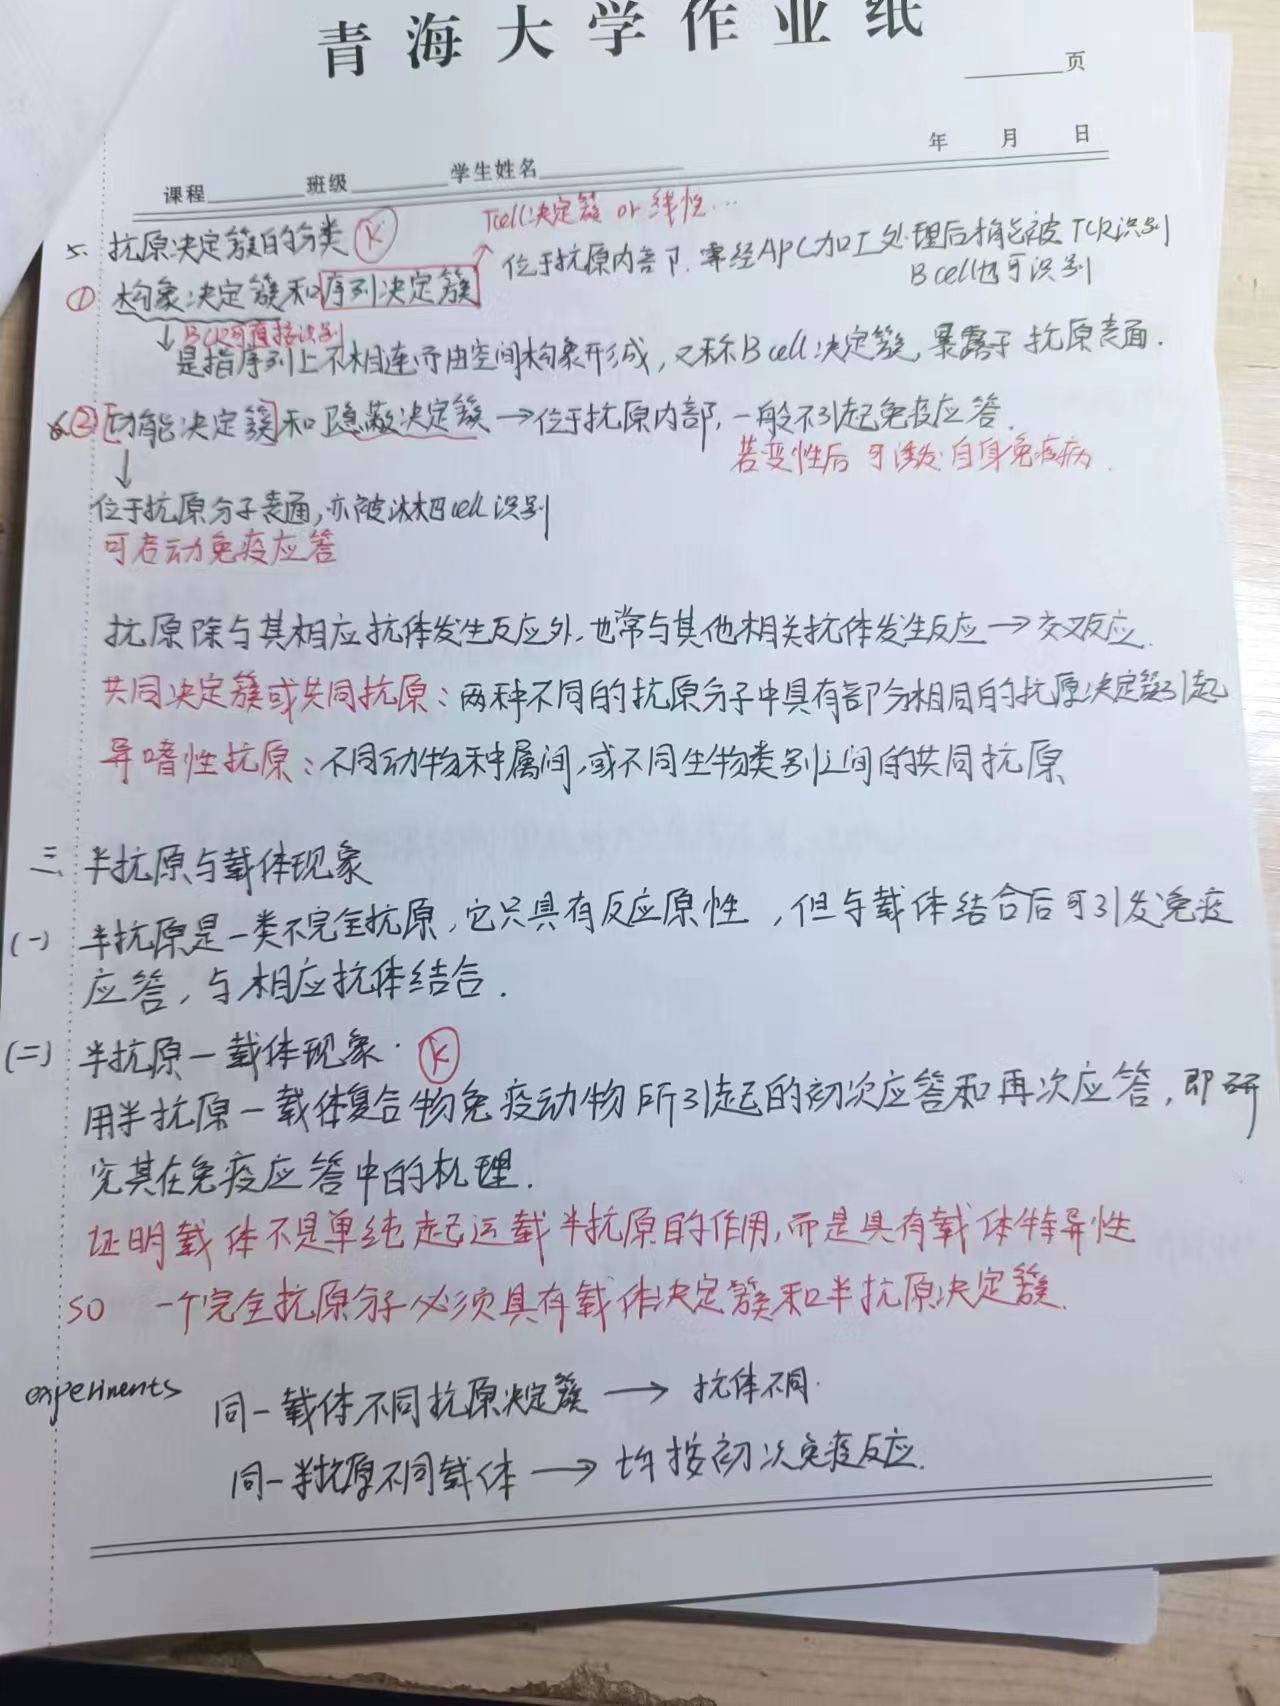 青海大学作业纸
页
年 月 日
课程 班级 学生姓名
Tcell决定簇 or 线性…
5. 抗原决定簇的分类 K
位于抗原内部,需经APC加工处理后才能被TCR识别
Bcell也可识别
① 构象决定簇和序列决定簇
BCR可直接识别
是指序列上不相连而由空间构象形成,又称Bcell决定簇,暴露于抗原表面.
②功能决定簇和隐蔽决定簇→位于抗原内部,一般不引起免疫应答.
若变性后可诱发自身免疫病.
位于抗原分子表面,亦被 cell识别
可启动免疫应答
抗原除与其相应抗体发生反应外,也常与其他相关抗体发生反应→交叉反应.
共同决定簇或共同抗原:两种不同的抗原分子中具有部分相同的抗原决定簇引起
异嗜性抗原:不同动物种属间,或不同生物类别之间的共同抗原
三. 半抗原与载体现象
(一) 半抗原是一类不完全抗原,它只具有反应原性,但与载体结合后可引发免疫
应答,与相应抗体结合.
(二) 半抗原—载体现象. K
用半抗原—载体复合物免疫动物所引起的初次应答和再次应答,即研
究其在免疫应答中的机理.
证明载体不是单纯起运载半抗原的作用,而是具有载体特异性
so 一个完全抗原分子必须具有载体决定簇和半抗原决定簇.
experiments 同一载体不同抗原决定簇 → 抗体不同.
同一半抗原不同载体 → 均按初次免疫反应.